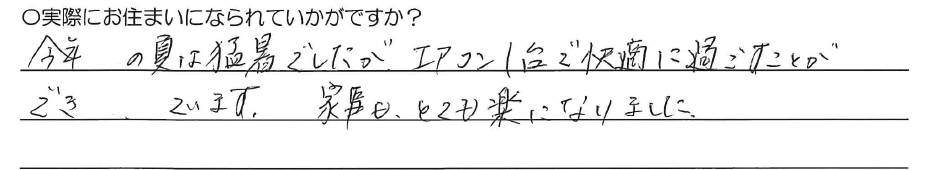 ○実際にお住まいになられていかがですか？
今年 の夏は猛暑でしたが、エアコン1台で快適に過ごすことが
でき ています。 家事も、とても楽になりました。